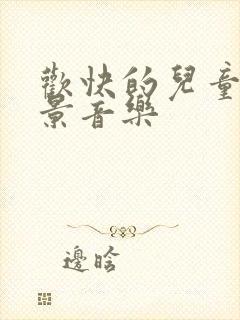 歡快的兒童
景音樂
邊晗